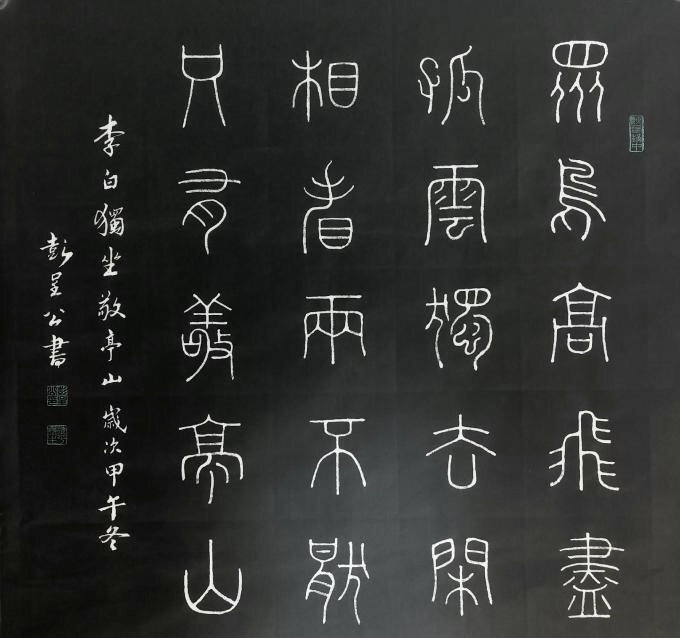 眾鳥高飛盡
孤雲獨去閑
相看兩不猒
只有敬亭山
李白獨坐敬亭山 歲次甲午冬
彭呈公書